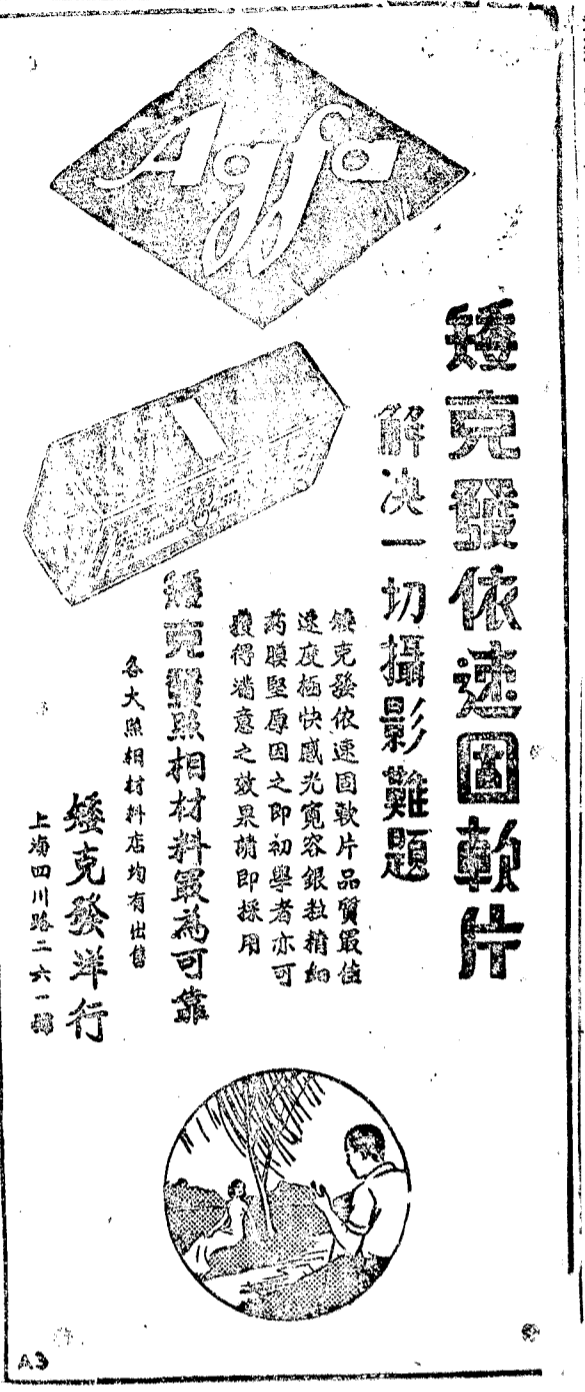 Agfa
矮克發依速固軟片
解决一切攝影難題
矮克發依速固軟片品質最佳
速度極快感光寬容銀粒精細
葯膜堅原因之即初學者亦可
獲得滿意之效果請即採用
矮克發照相材料最為可靠
各大照相材料店均有出售
矮克發洋行
上海四川路二六一號
A3